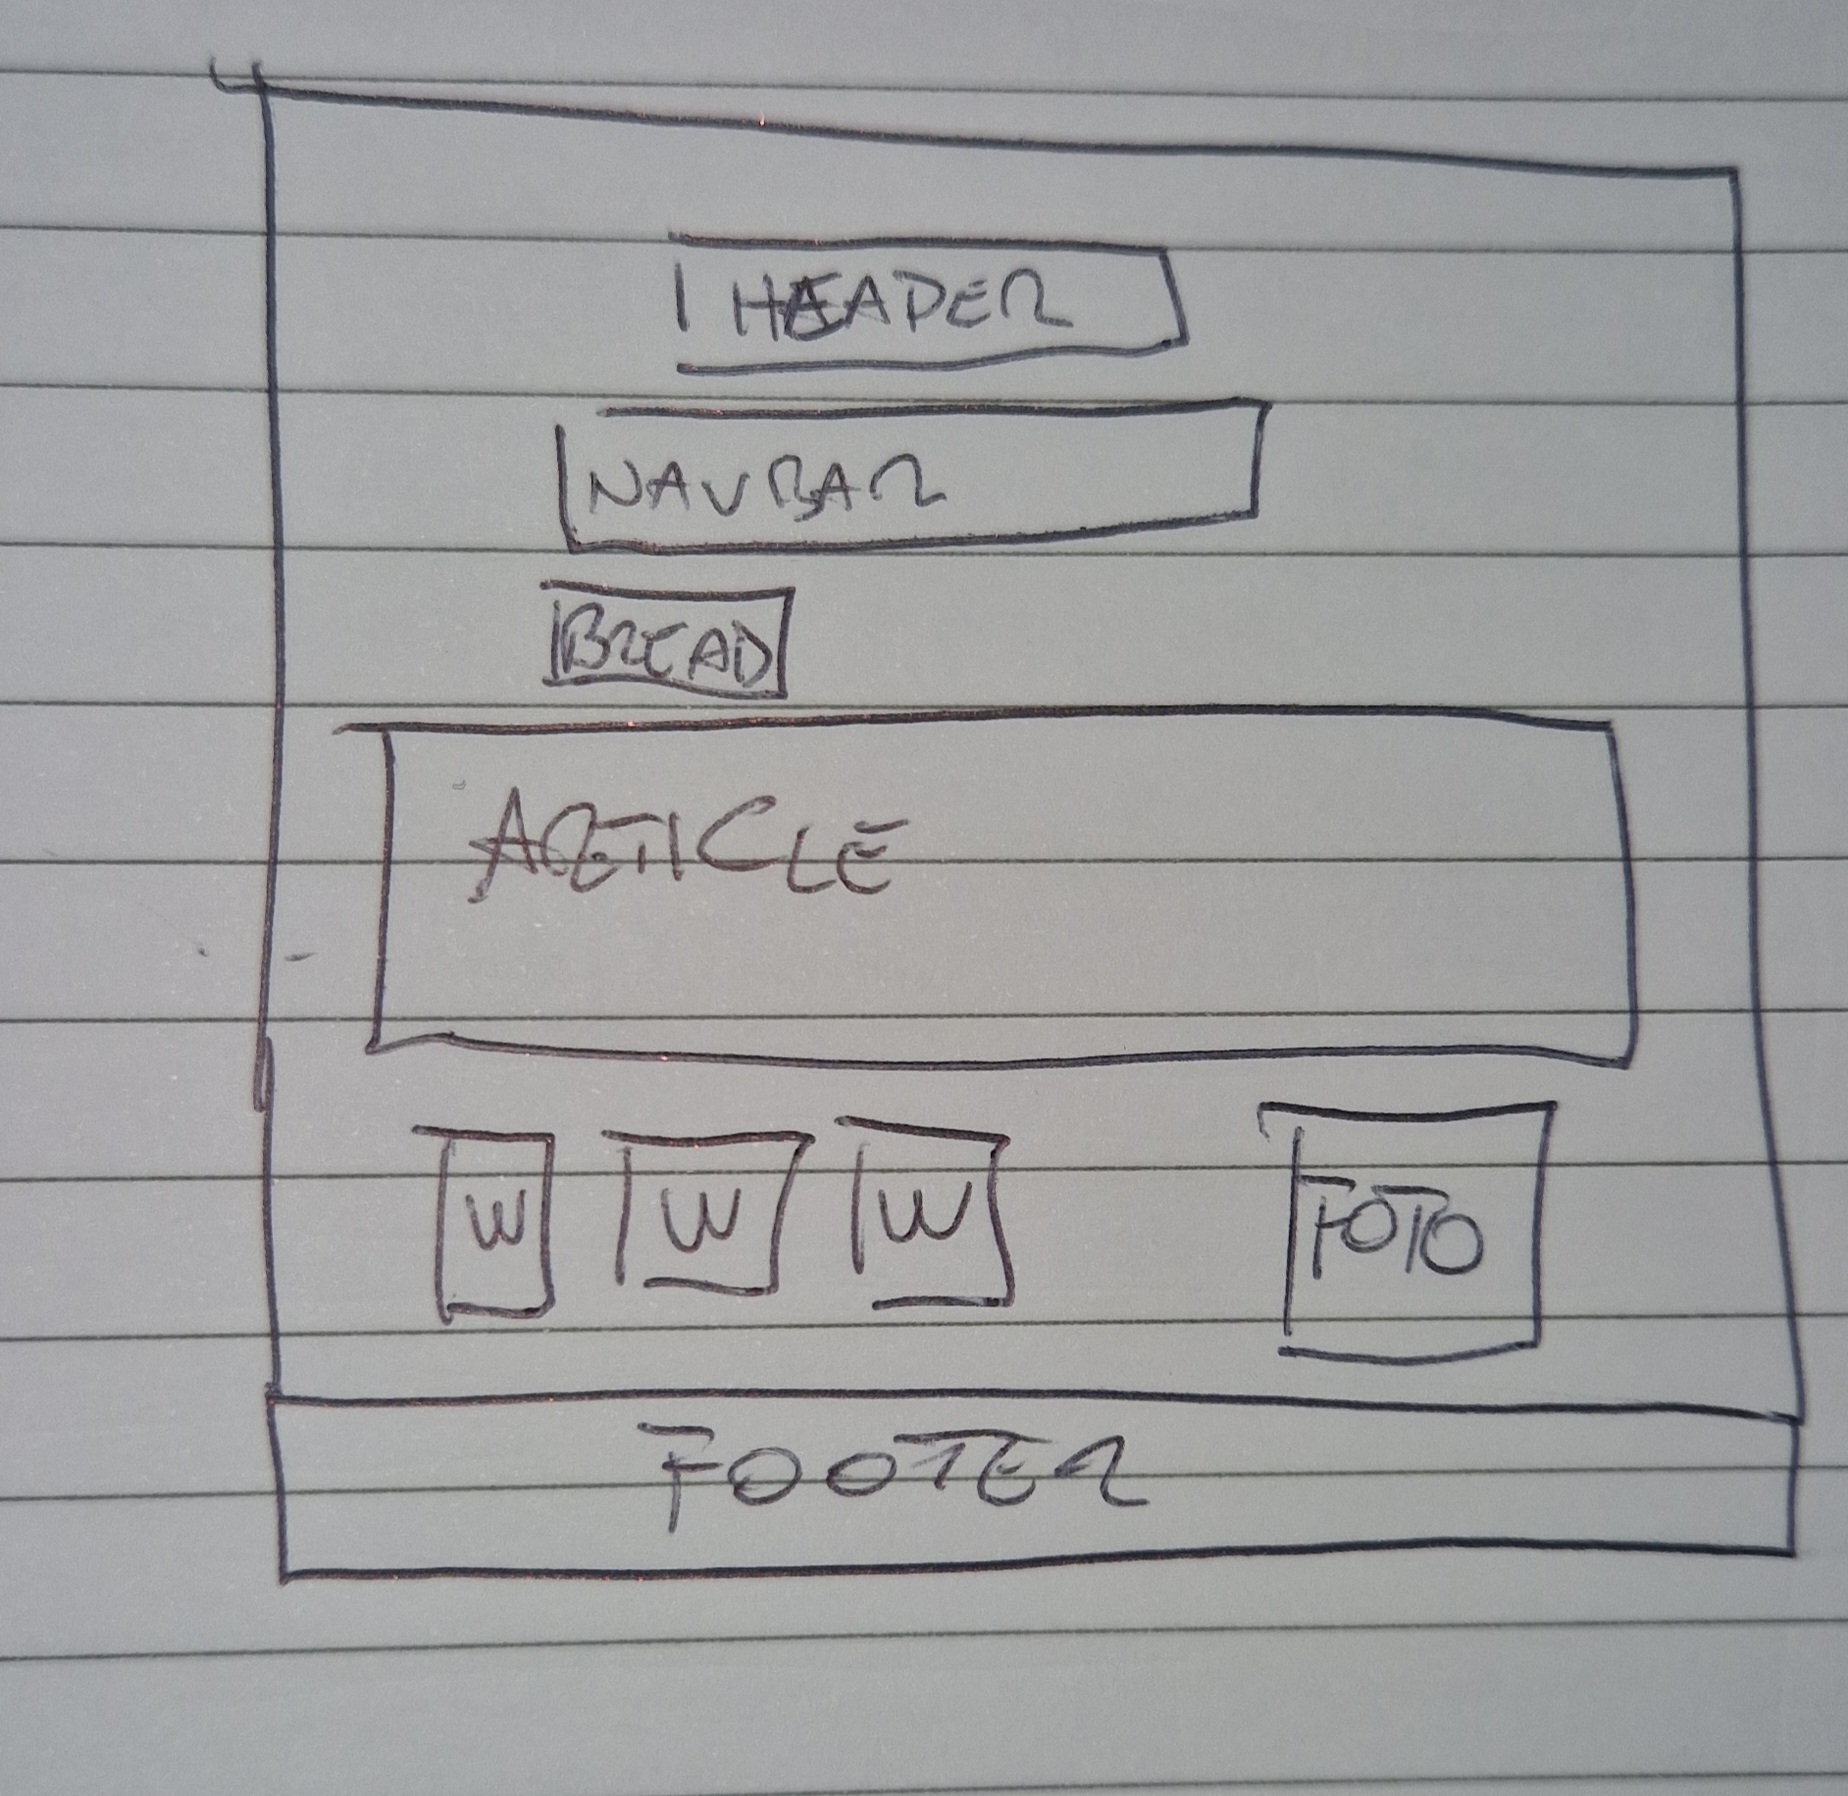 HEADER
NAVBAR
BREAD
ARTICLE
W W W FOTO
FOOTER